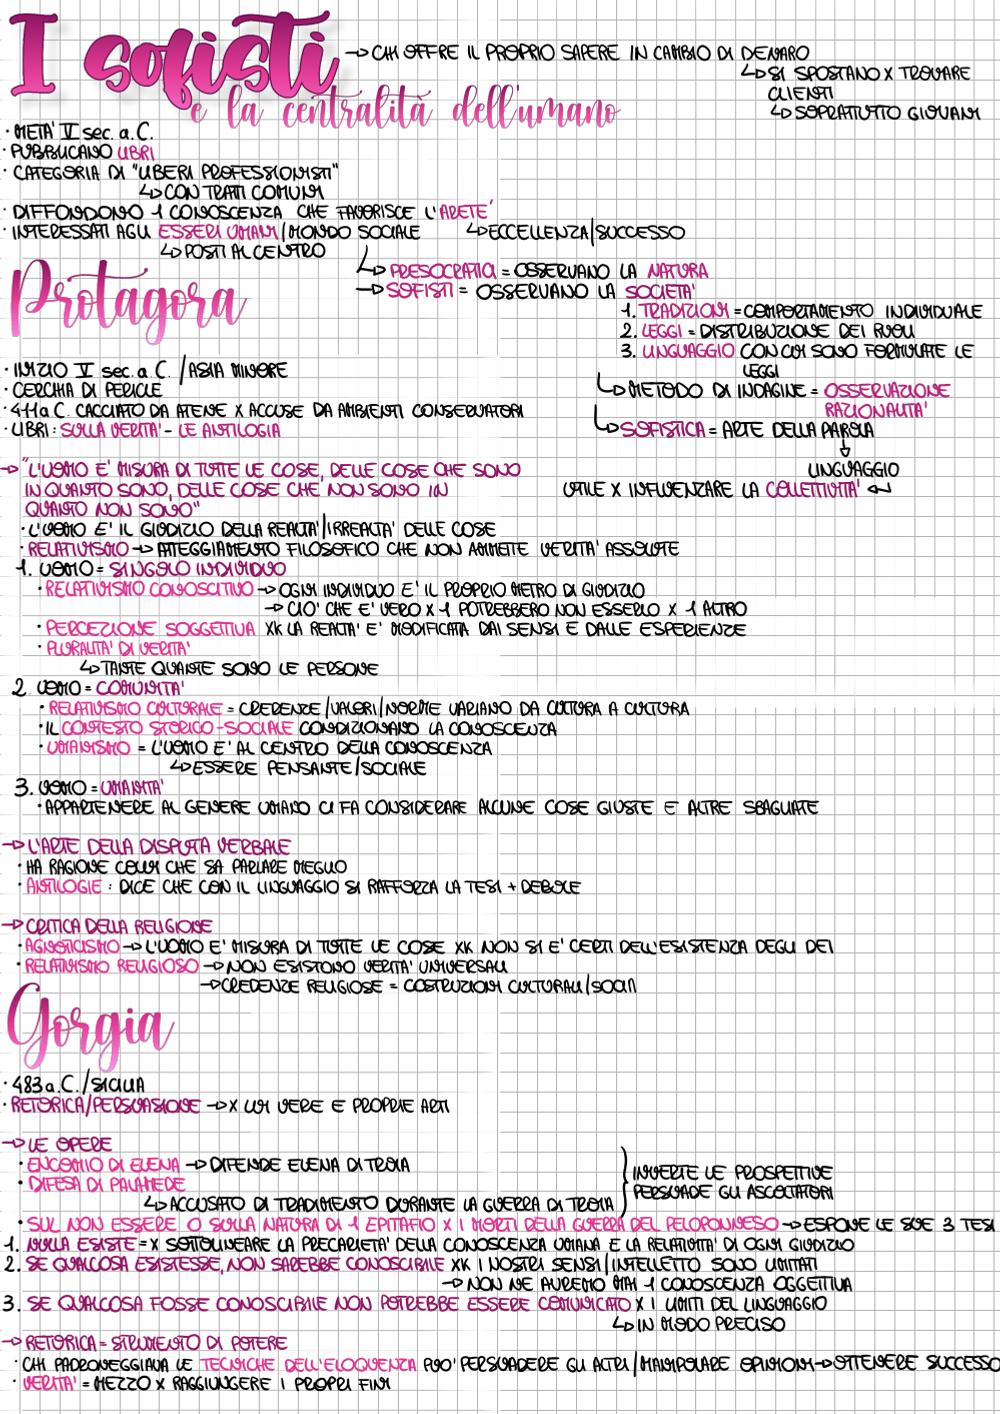 I sofisti → CHI OFFRE IL PROPRIO SAPERE IN CAMBIO DI DENARO
↳ SI SPOSTANO X TROVARE
CLIENTI
e la centralità dell'umano
↳ SOPRATUTTO GIOVANI
· META' V sec. a.C.
· PUBBLICANO LIBRI
· CATEGORIA DI "LIBERI PROFESSIONISTI"
↳ CON TRATTI COMUNI
· DIFFONDONO 1 CONOSCENZA CHE FAVORISCE L'ARETE'
↳ ECCELLENZA/SUCCESSO
· INTERESSATI AGLI ESSERI UMANI/MONDO SOCIALE
↳ POSTI AL CENTRO
↳ PRESOCRATICI = OSSERVANO LA NATURA
→ SOFISTI = OSSERVANO LA SOCIETA'
1. TRADIZIONI = COMPORTAMENTO INDIVIDUALE
2. LEGGI = DISTRIBUZIONE DEI RUOLI
3. LINGUAGGIO CON CUI SONO FORMULATE LE
LEGGI
↳ METODO DI INDAGINE = OSSERVAZIONE
RAZIONALITA'
↳ SOFISTICA = ARTE DELLA PAROLA
↓
LINGUAGGIO
UTILE X INFLUENZARE LA COLLETTIVITA' ↵
Protagora
· INIZIO V sec. a.C. /ASIA MINORE
· CERCHIA DI PERICLE
· 411 a.C. CACCIATO DA ATENE X ACCUSE DA AMBIENTI CONSERVATORI
· LIBRI: SULLA VERITA' - LE ANTILOGIA
→ "L'UOMO E' MISURA DI TUTTE LE COSE, DELLE COSE CHE SONO
IN QUANTO SONO, DELLE COSE CHE NON SONO IN
QUANTO NON SONO"
· L'UOMO E' IL GIUDIZIO DELLA REALTA'/IRREALTA' DELLE COSE
· RELATIVISMO → ATTEGGIAMENTO FILOSOFICO CHE NON AMMETE VERITA' ASSOLUTE
1. UOMO = SINGOLO INDIVIDUO
· RELATIVISMO CONOSCITIVO → OGNI INDIVIDUO E' IL PROPRIO METRO DI GIUDIZIO
→ CIO' CHE E' VERO X 1 POTREBBERO NON ESSERLO X 1 ALTRO
· PERCEZIONE SOGGETTIVA XK LA REALTA' E' MODIFICATA DAI SENSI E DALLE ESPERIENZE
· PLURALITA' DI VERITA'
↳ TANTE QUANTE SONO LE PERSONE
2. UOMO = COMUNITA'
· RELATIVISMO CULTURALE = CREDENZE/VALORI/NORME VARIANO DA CULTURA A CULTURA
· IL CONTESTO STORICO-SOCIALE CONDIZIONANO LA CONOSCENZA
· UMANISMO = L'UOMO E' AL CENTRO DELLA CONOSCENZA
↳ ESSERE PENSANTE/SOCIALE
3. UOMO = UMANITA'
· APPARTENERE AL GENERE UMANO CI FA CONSIDERARE ALCUNE COSE GIUSTE E ALTRE SBAGLIATE
→ L'ARTE DELLA DISPUTA VERBALE
· HA RAGIONE COLUI CHE SA PARLARE MEGLIO
· ANTILOGIE : DICE CHE CON IL LINGUAGGIO SI RAFFORZA LA TESI + DEBOLE
→ CRITICA DELLA RELIGIONE
· AGNOSTICISMO → L'UOMO E' MISURA DI TUTTE LE COSE XK NON SI E' CERTI DELL'ESISTENZA DEGLI DEI
· RELATIVISMO RELIGIOSO → NON ESISTONO VERITA' UNIVERSALI
→ CREDENZE RELIGIOSE = COSTRUZIONI CULTURALI/SOCIALI
Gorgia
· 483 a.C./SICILIA
· RETORICA/PERSUASIONE → X LUI VERE E PROPRIE ARTI
→ LE OPERE
· ENCOMIO DI ELENA → DIFENDE ELENA DI TROIA
· DIFESA DI PALAMEDE
↳ ACCUSATO DI TRADIMENTO DURANTE LA GUERRA DI TROIA
INVERTE LE PROSPETTIVE
PERSUADE GLI ASCOLTATORI
· SUL NON ESSERE O SULLA NATURA DI 1 EPITAFIO X I MORTI DELLA GUERRA DEL PELOPONNESO → ESPONE LE SUE 3 TESI
1. NULLA ESISTE = X SOTTOLINEARE LA PRECARIETA' DELLA CONOSCENZA UMANA E LA RELATIVITA' DI OGNI GIUDIZIO
2. SE QUALCOSA ESISTESSE, NON SAREBBE CONOSCIBILE XK I NOSTRI SENSI/INTELLETTO SONO LIMITATI
→ NON NE AVREMO MAI 1 CONOSCENZA OGGETTIVA
3. SE QUALCOSA FOSSE CONOSCIBILE NON POTREBBE ESSERE COMUNICATO X I LIMITI DEL LINGUAGGIO
↳ IN MODO PRECISO
→ RETORICA = STRUMENTO DI POTERE
· CHI PADRONEGGIAVA LE TECNICHE DELL'ELOQUENZA PUO' PERSUADERE GLI ALTRI/MANIPOLARE OPINIONI → OTTENERE SUCCESSO
· VERITA' = MEZZO X RAGGIUNGERE I PROPRI FINI